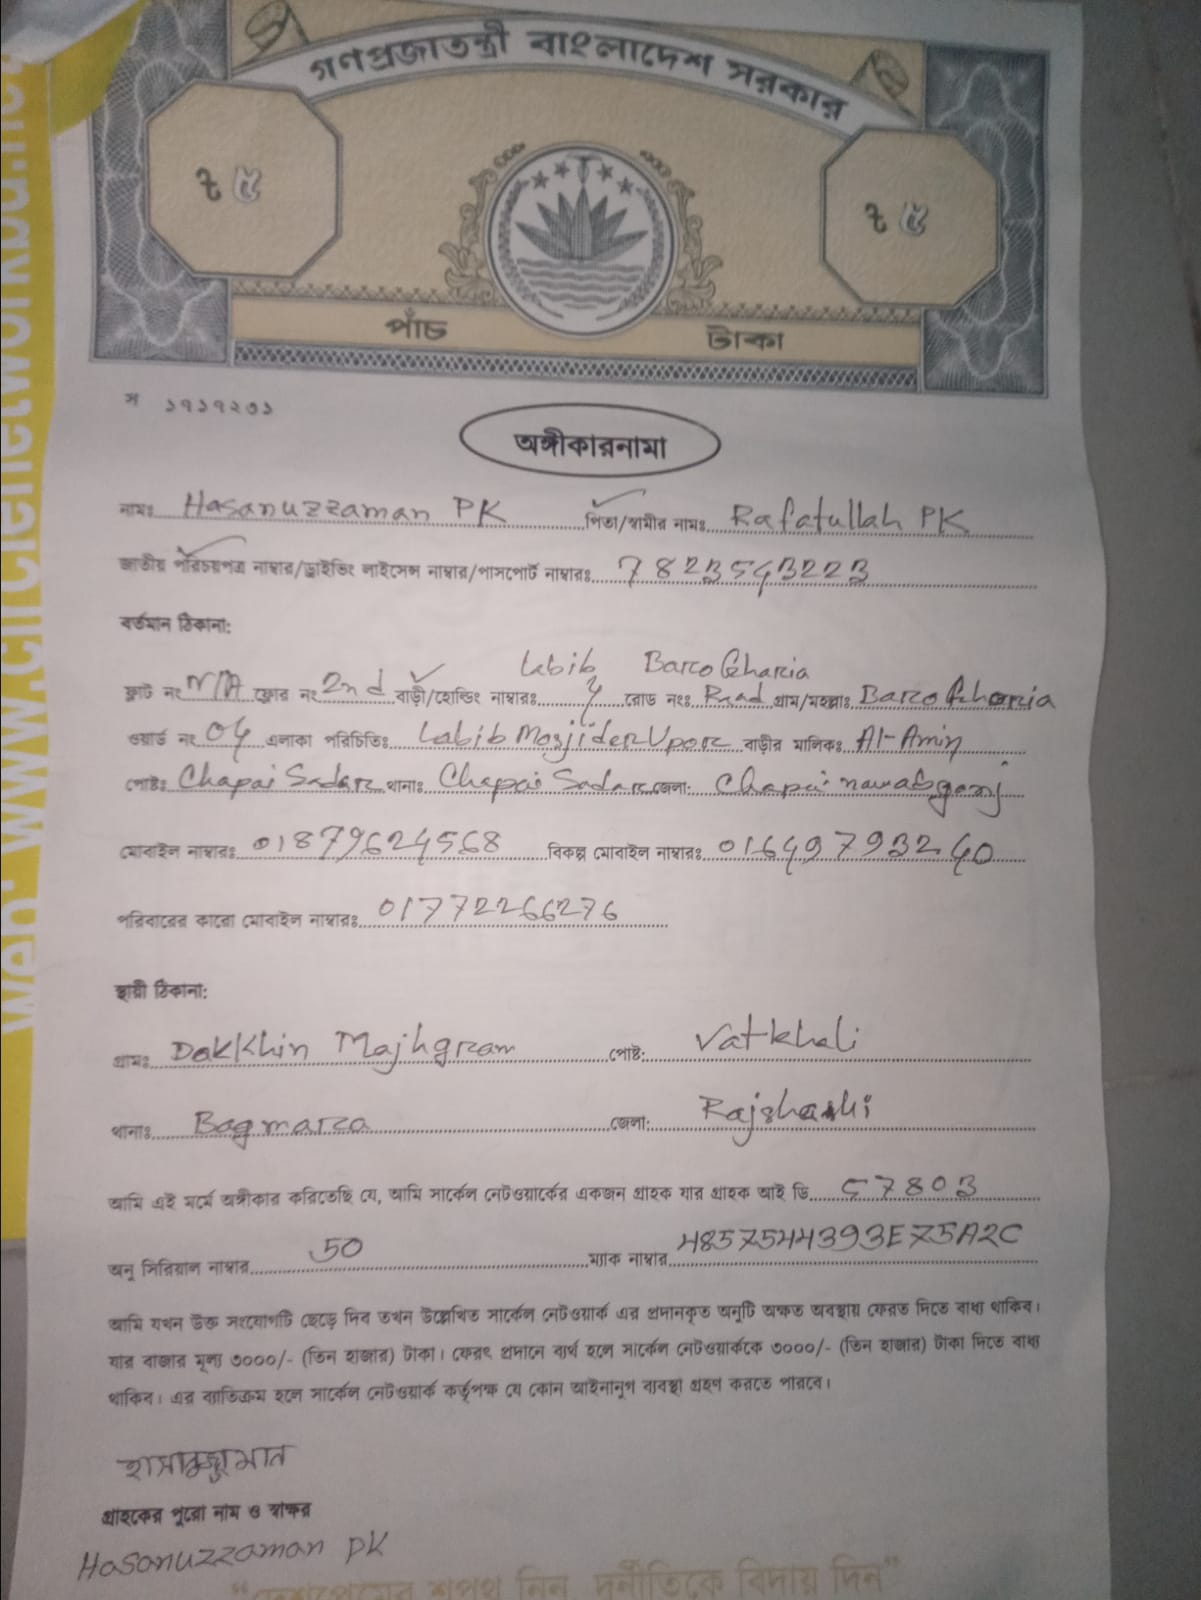 গণপ্রজাতন্ত্রী বাংলাদেশ সরকার
৳ ৫ ৳ ৫
পাঁচ টাকা
স ১৭১৭২৩১
অঙ্গীকারনামা
নামঃ Hasanuzzaman PK পিতা/স্বামীর নামঃ Rafatullah PK
জাতীয় পরিচয়পত্র নাম্বার/ড্রাইভিং লাইসেন্স নাম্বার/পাসপোর্ট নাম্বারঃ 7823543223
বর্তমান ঠিকানা:
Labib Baroghoria
ফ্লাট নং N/A ফ্লোর নং 2nd বাড়ী/হোল্ডিং নাম্বারঃ রোড নংঃ Road গ্রাম/মহল্লাঃ Baroghoria
ওয়ার্ড নং 04 এলাকা পরিচিতিঃ Labib Mosjider Upor বাড়ীর মালিকঃ Al-Amin
পোষ্টঃ Chapai Sadar থানাঃ Chapai Sadar জেলা: Chapai nawabganj
মোবাইল নাম্বারঃ 01879624568 বিকল্প মোবাইল নাম্বারঃ 01649793240
পরিবারের কারো মোবাইল নাম্বারঃ 01772266276
স্থায়ী ঠিকানা:
গ্রামঃ Dakkhin Majhgram পোষ্ট: Vatkhali
থানাঃ Bagmara জেলা: Rajshashi
আমি এই মর্মে অঙ্গীকার করিতেছি যে, আমি সার্কেল নেটওয়ার্কের একজন গ্রাহক যার গ্রাহক আই ডি 57803
অনু সিরিয়াল নাম্বার 50 ম্যাক নাম্বার 48575444393E75A2C
আমি যখন উক্ত সংযোগটি ছেড়ে দিব তখন উল্লেখিত সার্কেল নেটওয়ার্ক এর প্রদানকৃত অনুটি অক্ষত অবস্থায় ফেরত দিতে বাধ্য থাকিব।
যার বাজার মূল্য ৩০০০/- (তিন হাজার) টাকা। ফেরৎ প্রদানে ব্যর্থ হলে সার্কেল নেটওয়ার্ককে ৩০০০/- (তিন হাজার) টাকা দিতে বাধ্য
থাকিব। এর ব্যাতিক্রম হলে সার্কেল নেটওয়ার্ক কর্তৃপক্ষ যে কোন আইনানুগ ব্যবস্থা গ্রহণ করতে পারবে।
হাসানুজ্জামান
গ্রাহকের পুরো নাম ও স্বাক্ষর
Hasanuzzaman PK
"দেশপ্রেমের শপথ নিন, দুর্নীতিকে বিদায় দিন"